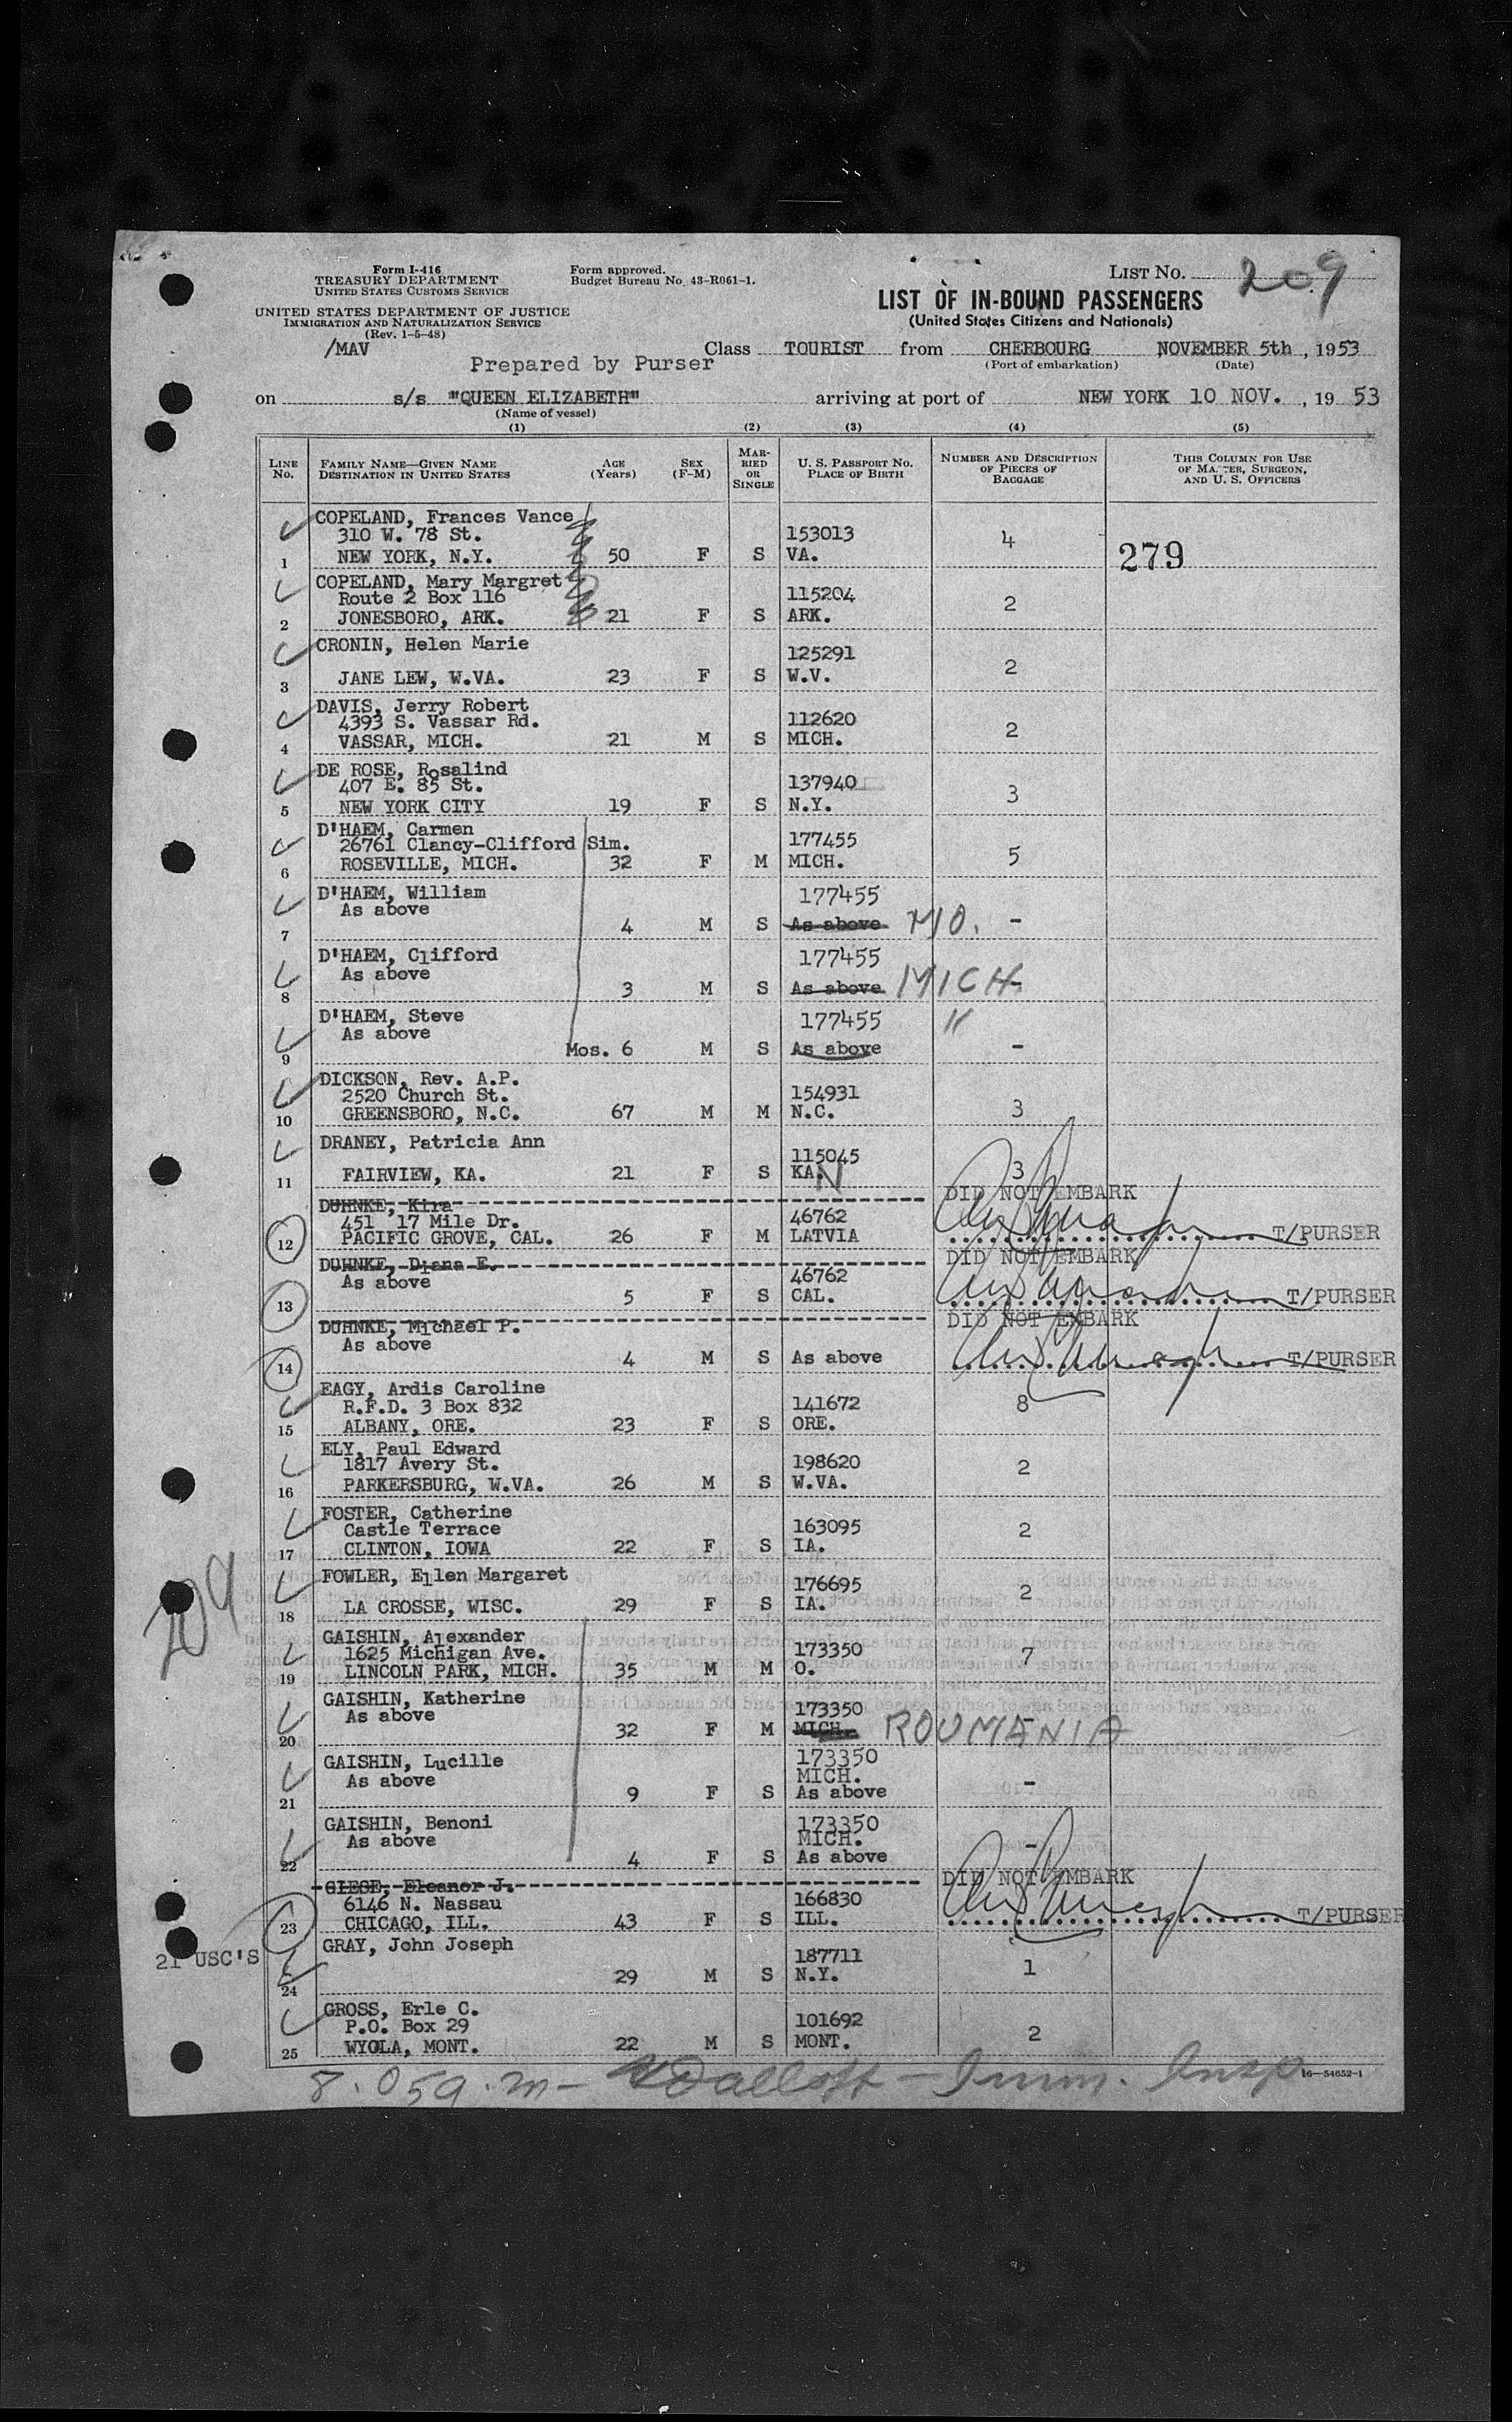 Form I-416
TREASURY DEPARTMENT
UNITED STATES CUSTOMS SERVICE
UNITED STATES DEPARTMENT OF JUSTICE
IMMIGRATION AND NATURALIZATION SERVICE
(Rev. 1-5-48)
Form approved.
Budget Bureau No. 43-R061-1.
LIST NO. 209
LIST OF IN-BOUND PASSENGERS
(United States Citizens and Nationals)
/MAV
Prepared by Purser
Class TOURIST from CHERBOURG NOVEMBER 5th, 1953
(Port of embarkation) (Date)
on s/s "QUEEN ELIZABETH" arriving at port of NEW YORK 10 NOV., 19 53
(Name of vessel)
(1) (2) (3) (4) (5)
LINE NO.
FAMILY NAME—GIVEN NAME
DESTINATION IN UNITED STATES
AGE (Years)
SEX (F-M)
MARRIED OR SINGLE
U. S. PASSPORT NO.
PLACE OF BIRTH
NUMBER AND DESCRIPTION OF PIECES OF BAGGAGE
THIS COLUMN FOR USE OF MASTER, SURGEON, AND U. S. OFFICERS
COPELAND, Frances Vance
310 W. 78 St. 153013 4
1 NEW YORK, N.Y. 50 F S VA. 279
COPELAND, Mary Margret
Route 2 Box 116 115204 2
2 JONESBORO, ARK. 21 F S ARK.
CRONIN, Helen Marie
125291 2
3 JANE LEW, W.VA. 23 F S W.V.
DAVIS, Jerry Robert
4393 S. Vassar Rd. 112620 2
4 VASSAR, MICH. 21 M S MICH.
DE ROSE, Rosalind
407 E. 85 St. 137940 3
5 NEW YORK CITY 19 F S N.Y.
D'HAEM, Carmen
26761 Clancy-Clifford Sim. 177455 5
6 ROSEVILLE, MICH. 32 F M MICH.
D'HAEM, William 177455
As above
7 4 M S As above MO. -
D'HAEM, Clifford 177455
As above
8 3 M S As above MICH. -
D'HAEM, Steve 177455 "
As above
9 Mos. 6 M S As above -
DICKSON, Rev. A.P.
2520 Church St. 154931
10 GREENSBORO, N.C. 67 M M N.C. 3
DRANEY, Patricia Ann
115045
11 FAIRVIEW, KA. 21 F S KAN 3
DUHNKE, Kira DID NOT EMBARK
451 17 Mile Dr. 46762
12 PACIFIC GROVE, CAL. 26 F M LATVIA T/PURSER
DUHNKE, Diana E. DID NOT EMBARK
As above 46762
13 5 F S CAL. T/PURSER
DUHNKE, Michael P. DID NOT EMBARK
As above
14 4 M S As above T/PURSER
EAGY, Ardis Caroline
R.F.D. 3 Box 832 141672 8
15 ALBANY, ORE. 23 F S ORE.
ELY, Paul Edward
1817 Avery St. 198620 2
16 PARKERSBURG, W.VA. 26 M S W.VA.
FOSTER, Catherine
Castle Terrace 163095 2
17 CLINTON, IOWA 22 F S IA.
FOWLER, Ellen Margaret
176695 2
18 LA CROSSE, WISC. 29 F S IA.
209
GAISHIN, Alexander
1625 Michigan Ave. 173350 7
19 LINCOLN PARK, MICH. 35 M M O.
GAISHIN, Katherine
As above 173350 -
20 32 F M MICH. ROUMANIA
GAISHIN, Lucille 173350
As above MICH. -
21 9 F S As above
GAISHIN, Benoni 173350
As above MICH. -
22 4 F S As above
GIESE, Eleanor J. DID NOT EMBARK
6146 N. Nassau 166830
23 CHICAGO, ILL. 43 F S ILL. T/PURSER
21 USC'S
GRAY, John Joseph
187711 1
24 29 M S N.Y.
GROSS, Erle C.
P.O. Box 29 101692 2
25 WYOLA, MONT. 22 M S MONT.
Imm. Insp.
16—54652-1